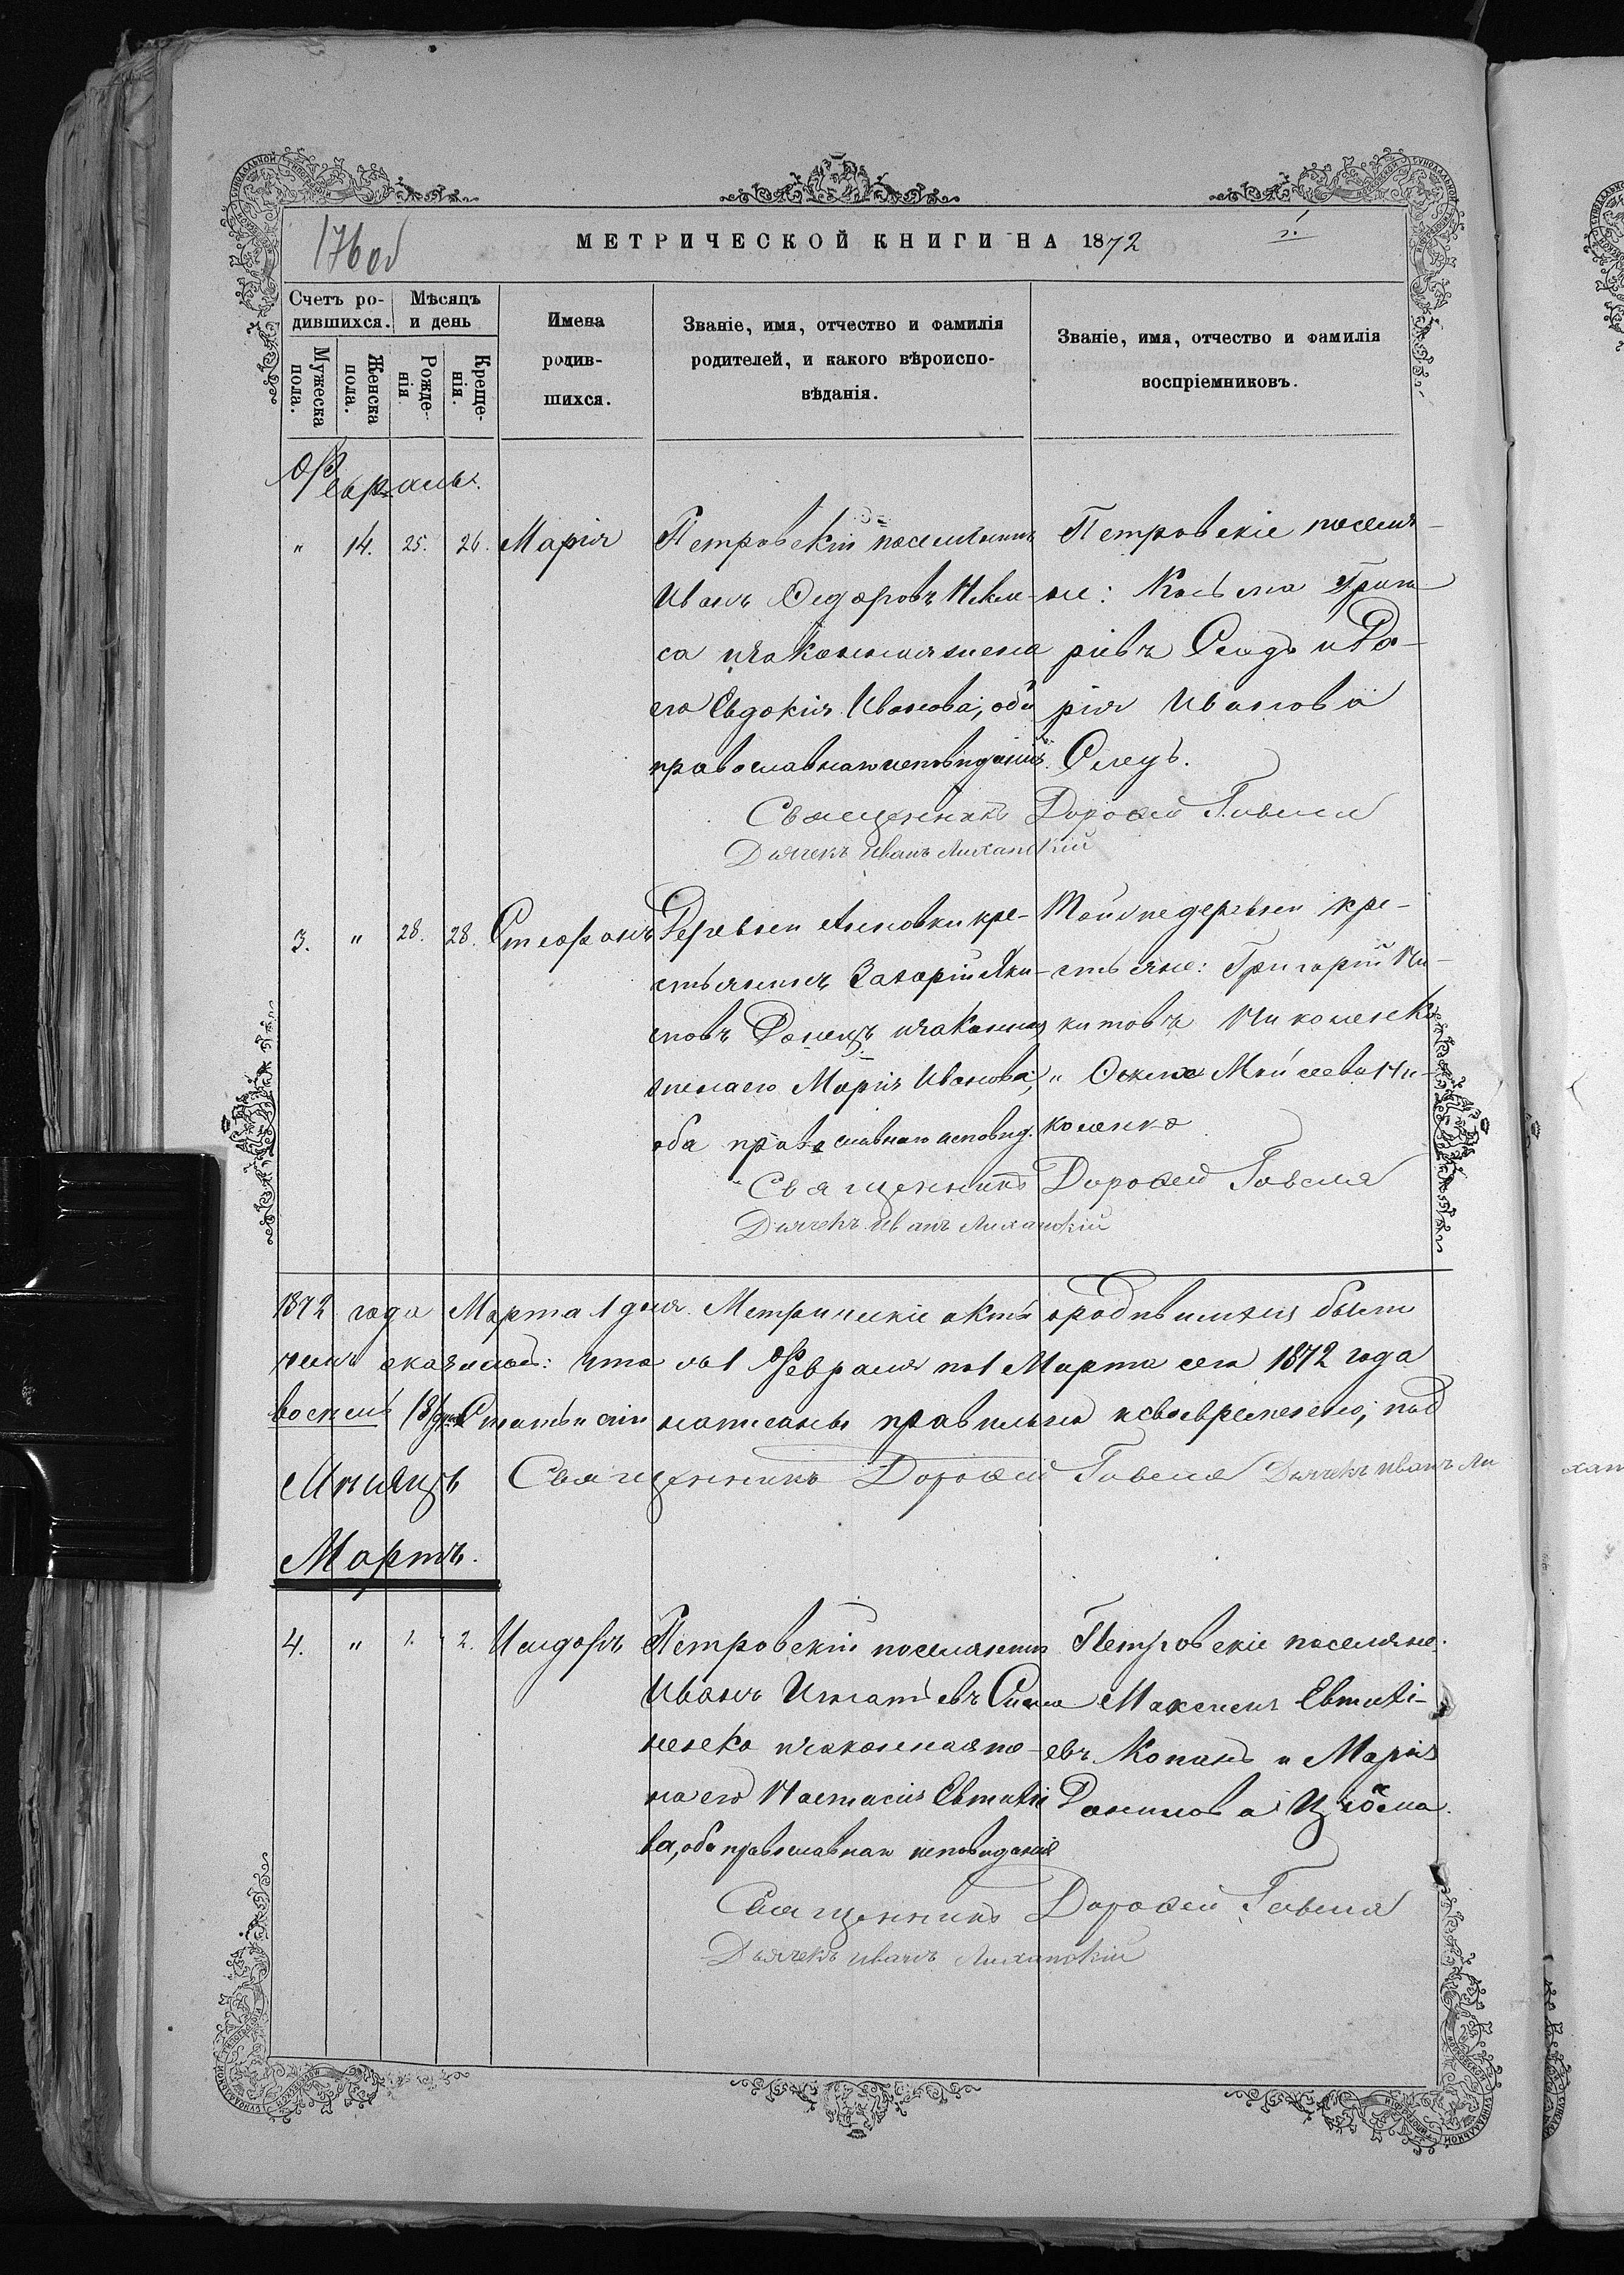 176 об
МЕТРИЧЕСКОЙ КНИГИ НА 1872
Счетъ ро-
дившихся.
Мѣсяцъ
и день
Имена
родив-
шихся.
Званіе, имя, отчество и фамилія
родителей, и какого вѣроиспо-
вѣданія.
Званіе, имя, отчество и фамилія
воспріемниковъ.
Мужеска
пола.
Женска
пола.
Рожде-
нія
Креще-
нія.
Февраль.
" 14. 25. 26. Марія
Петровскій поселянинъ
Иванъ Ѳедоровъ
са и законная жена
его Евдокія Иванова, оба
православнаго исповѣданія.
Петровскіе поселя-
не: Косьма Григо-
ріевъ и Да-
рія Иванова
Священникъ Дороѳей Говеля
Дьячекъ Иванъ Лиханскій
3. " 28. 28. Стефанъ
Деревни Анновки кре-
стьянинъ Захарій Яки-
мовъ Донецъ и законная
жена его Марія Иванова,
оба православнаго исповѣд.
Той же деревни кре-
стьяне: Григорій Ни-
китовъ Николенко
и Ѳекла Моисеева Ни-
коленко
Священникъ Дороѳей Говеля
Дьячекъ Иванъ Лиханскій
1872 года Марта 1 дня. Метрическіе акты о родившихся были
что съ 1 Февраля по 1 Марта сего 1872 года
восемь /8/ статьи сіи написаны правильно и своевременно; подъ
Священникъ Дороѳей Говеля Дьячекъ Иванъ Ли
хан
Мѣсяцъ
Мартъ.
4. " 1. 2. Исидоръ
Петровскій поселянинъ
Иванъ Игнатьевъ Симо
ненко и законная же-
на его Настасія Евтихіе
ва, оба православнаго исповѣданія
Петровскіе поселяне:
Максимъ Евтихі-
евъ Копань и Марія
Данилова
Священникъ Дороѳей Говеля
Дьячекъ Иванъ Лиханскій